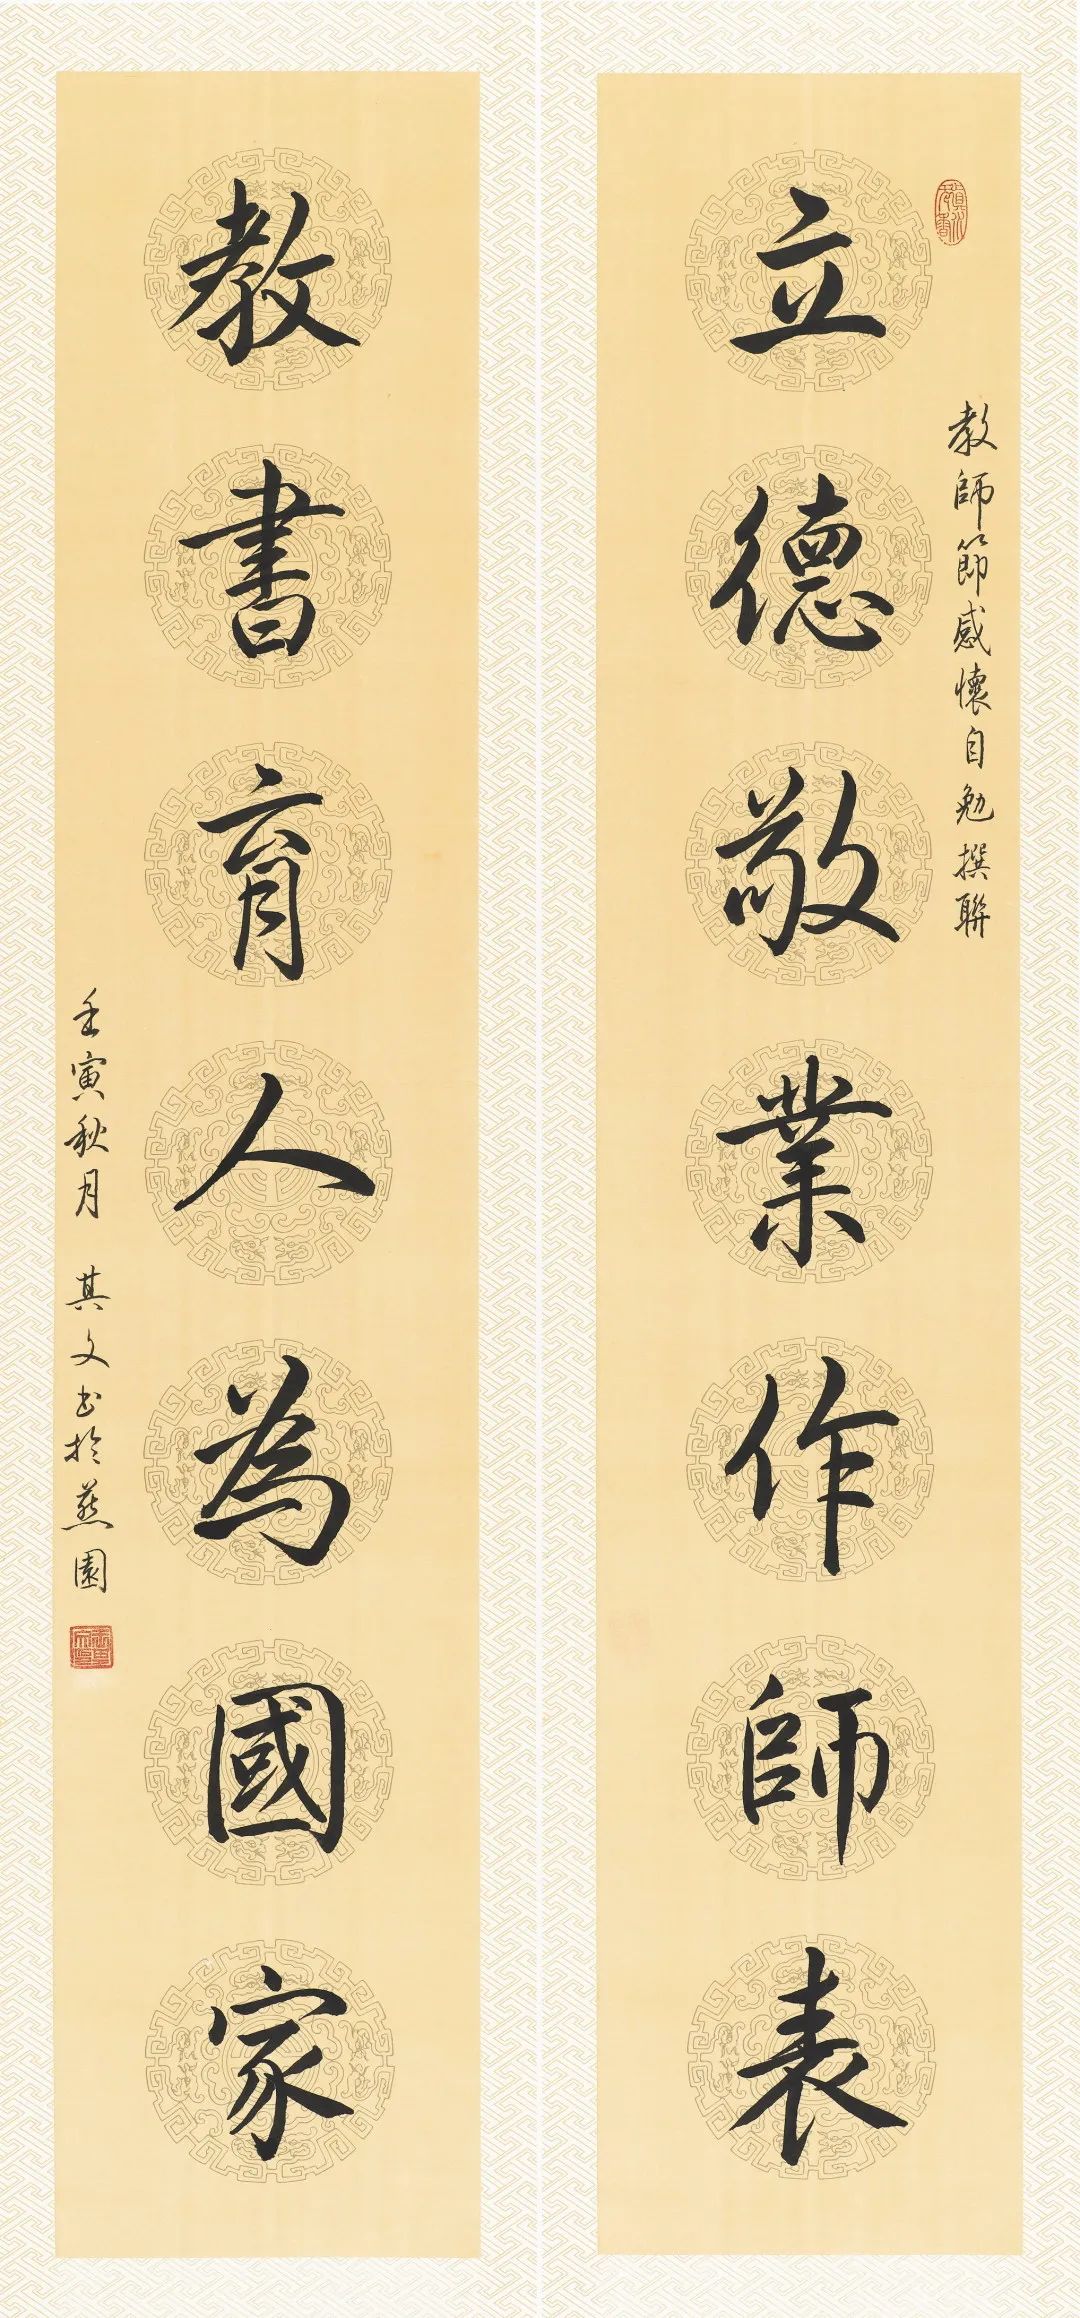 教師節感懷自勉撰聯
立德敬業作師表
教書育人為國家
壬寅秋月 其文书於燕園